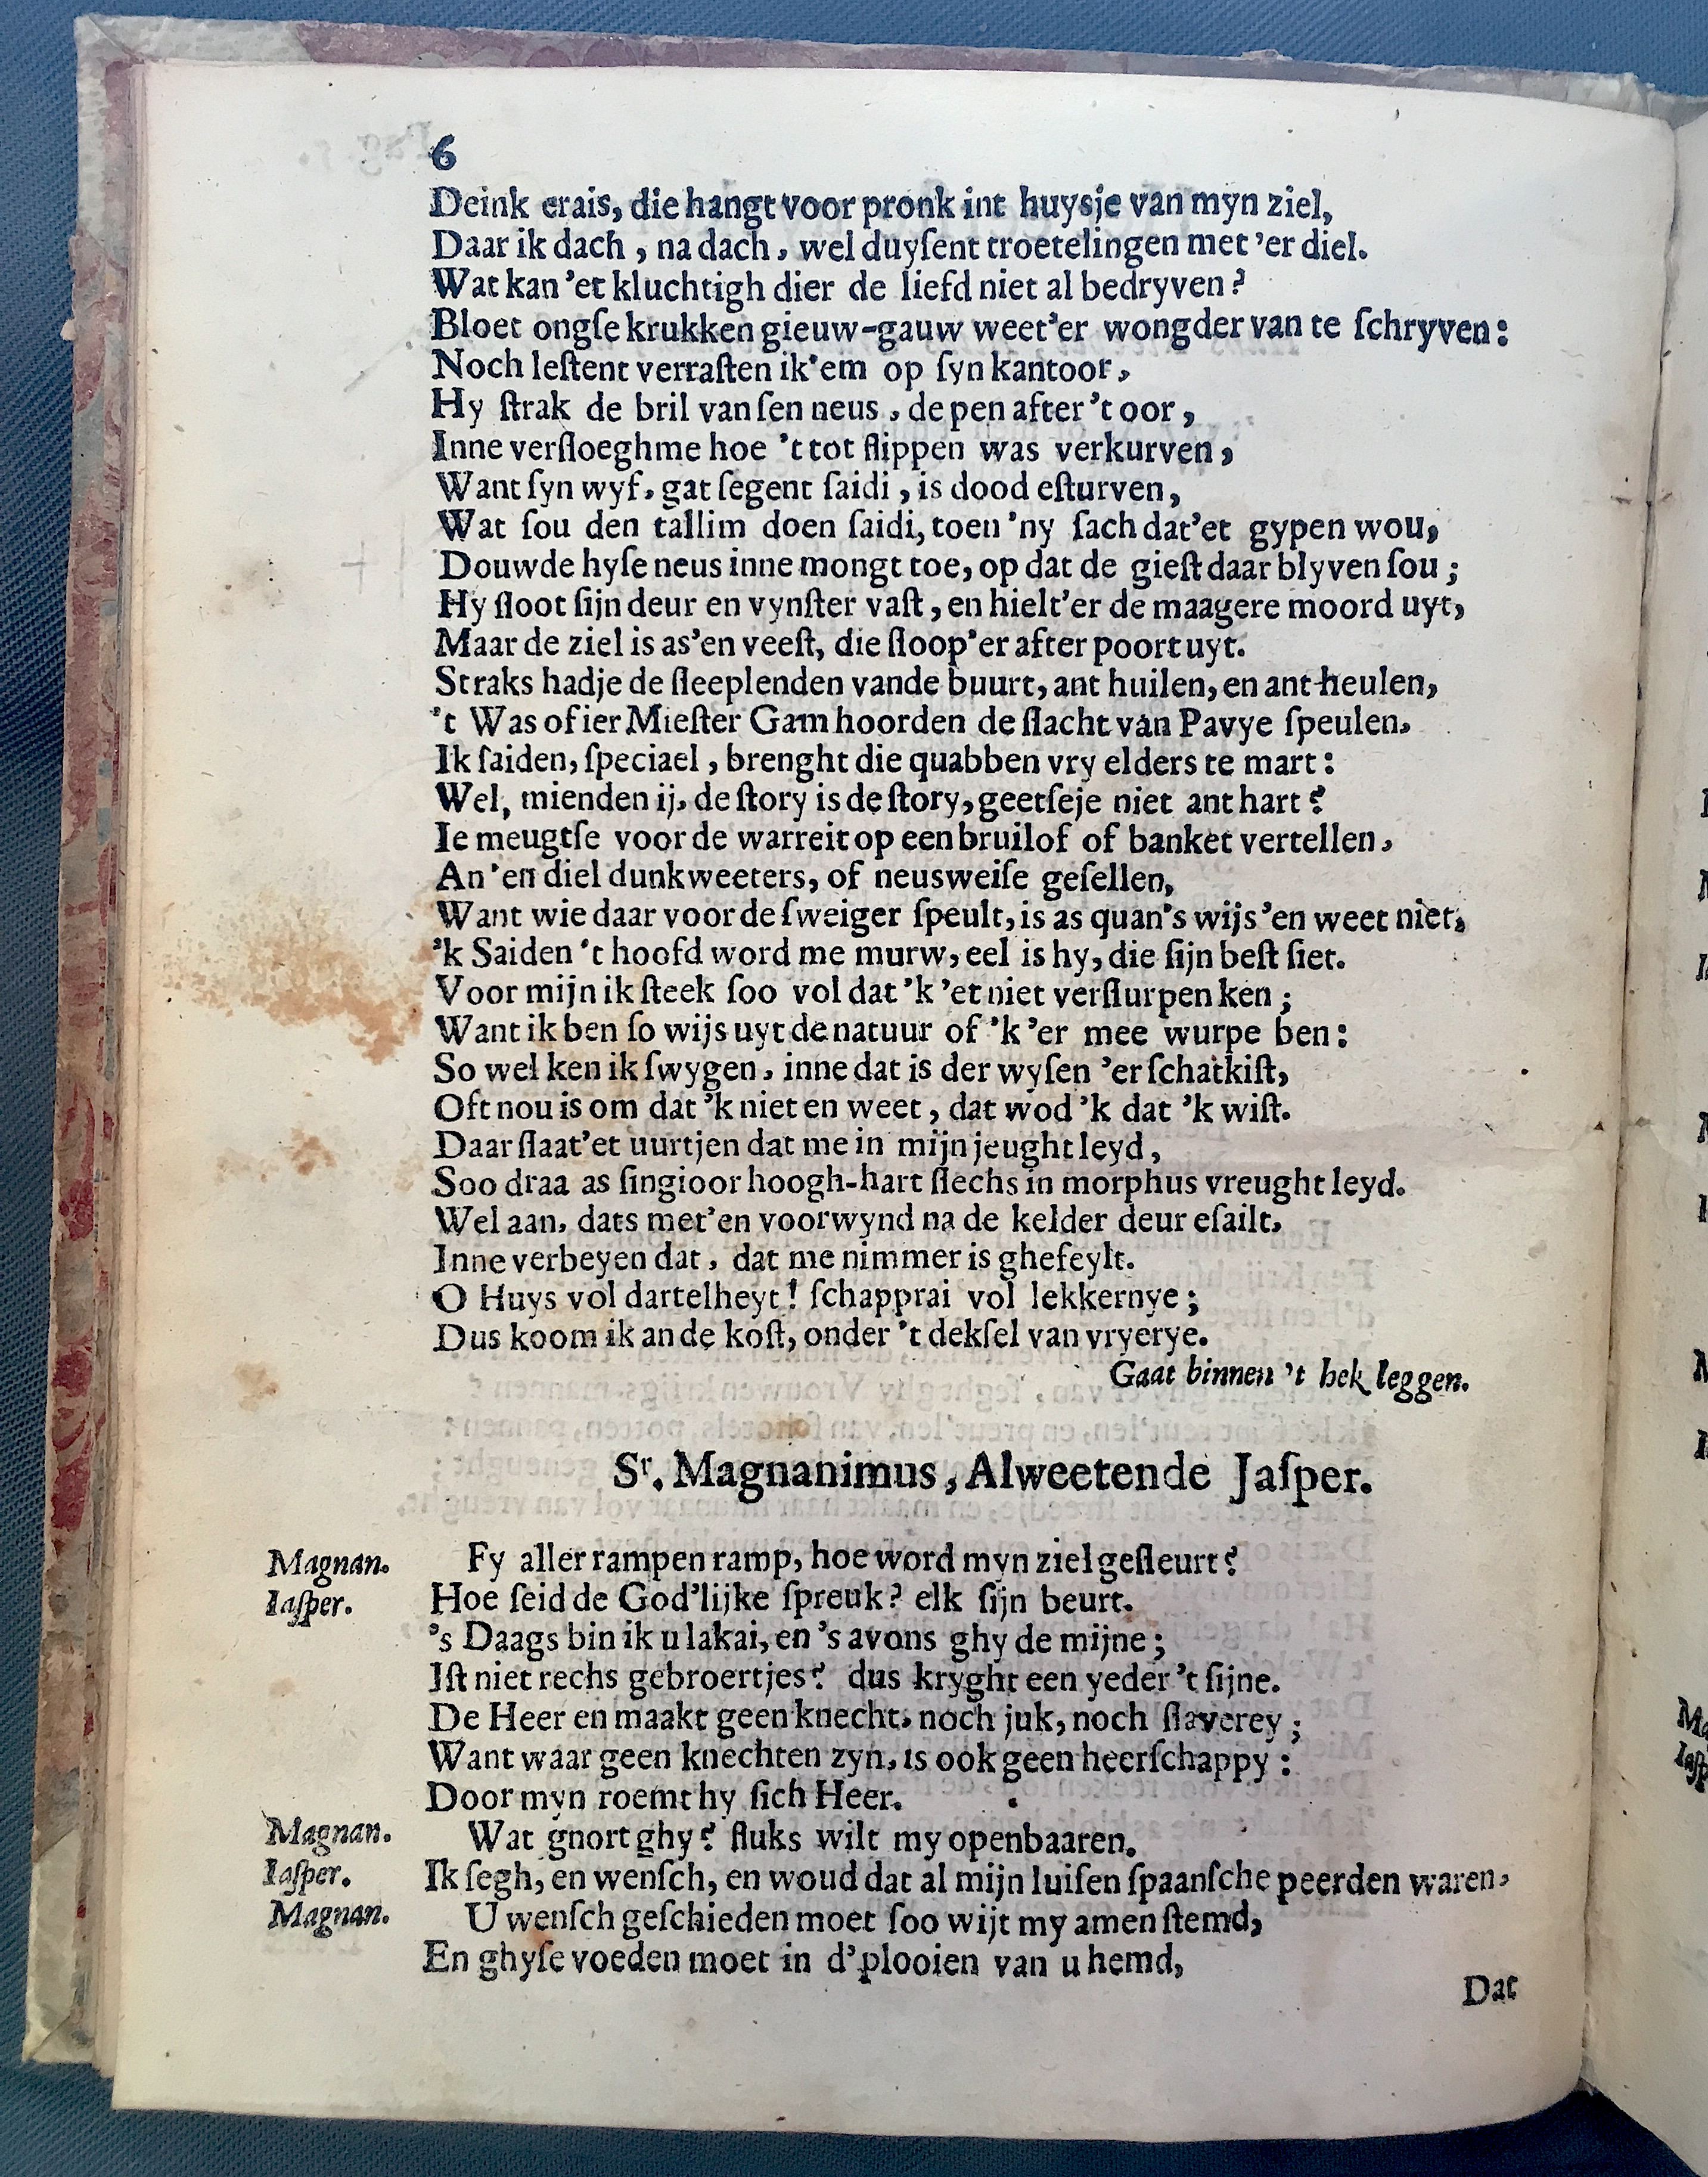 6
Deink erais, die hangt voor pronk int huysje van myn ziel,
Daar ik dach, na dach, wel duyſent troetelingen met 'er diel.
Wat kan 'et kluchtigh dier de liefd niet al bedryven?
Bloet ongſe krukken gieuw-gauw weet'er wongder van te ſchryven:
Noch leſtent verraſten ik'em op ſyn kantoor,
Hy ſtrak de bril van ſen neus, de pen after 't oor,
Inne verſloeghme hoe 't tot ſlippen was verkurven,
Want ſyn wyf, gat ſegent ſaidi, is dood eſturven,
Wat ſou den tallim doen ſaidi, toen 'ny ſach dat'et gypen wou,
Douwde hyſe neus inne mongt toe, op dat de gieſt daar blyven ſou;
Hy ſloot ſijn deur en vynſter vaſt, en hielt'er de maagere moord uyt,
Maar de ziel is as'en veeſt, die ſloop'er after poort uyt.
Straks hadje de ſleeplenden vande buurt, ant huilen, en ant heulen,
't Was of ier Mieſter Gam hoorden de ſlacht van Pavye ſpeulen.
Ik ſaiden, ſpeciael, brenght die quabben vry elders te mart:
Wel, mienden ij, de ſtory is de ſtory, geetſeje niet ant hart?
Ie meugtſe voor de warreit op een bruilof of banket vertellen,
An 'en diel dunkweeters, of neusweiſe geſellen,
Want wie daar voor de ſweiger ſpeult, is as quan's wijs 'en weet niet,
'k Saiden 't hoofd word me murw, eel is hy, die ſijn beſt ſiet.
Voor mijn ik ſteek ſoo vol dat 'k 'et niet verſlurpen ken;
Want ik ben ſo wijs uyt de natuur of 'k 'er mee wurpe ben:
So wel ken ik ſwygen, inne dat is der wyſen 'er ſchatkiſt,
Oft nou is om dat 'k niet en weet, dat wod 'k dat 'k wiſt.
Daar ſlaat'et uurtjen dat me in mijn jeught leyd,
Soo draa as ſingioor hoogh-hart ſlechs in morphus vreught leyd.
Wel aan, dats met'en voorwynd na de kelder deur eſailt,
Inne verbeyen dat, dat me nimmer is ghefeylt.
O Huys vol dartelheyt! ſchapprai vol lekkernye;
Dus koom ik an de koſt, onder 't dekſel van vryerye.
Gaat binnen 't hek leggen.
Sr. Magnanimus, Alweetende Jaſper.
Magnan. Fy aller rampen ramp, hoe word myn ziel geſleurt?
Iaſper. Hoe ſeid de God'lijke ſpreuk? elk ſijn beurt.
's Daags bin ik u lakai, en 's avons ghy de mijne;
Iſt niet rechs gebroertjes? dus kryght een yeder 't ſijne.
De Heer en maakt geen knecht, noch juk, noch ſlaverey;
Want waar geen knechten zyn, is ook geen heerſchappy:
Door myn roemt hy ſich Heer.
Magnan. Wat gnort ghy? fluks wilt my openbaaren.
Iaſper. Ik ſegh, en wenſch, en woud dat al mijn luiſen ſpaanſche peerden waren,
Magnan. U wenſch geſchieden moet ſoo wijt my amen ſtemd,
En ghyſe voeden moet in d'plooien van u hemd,
Dat